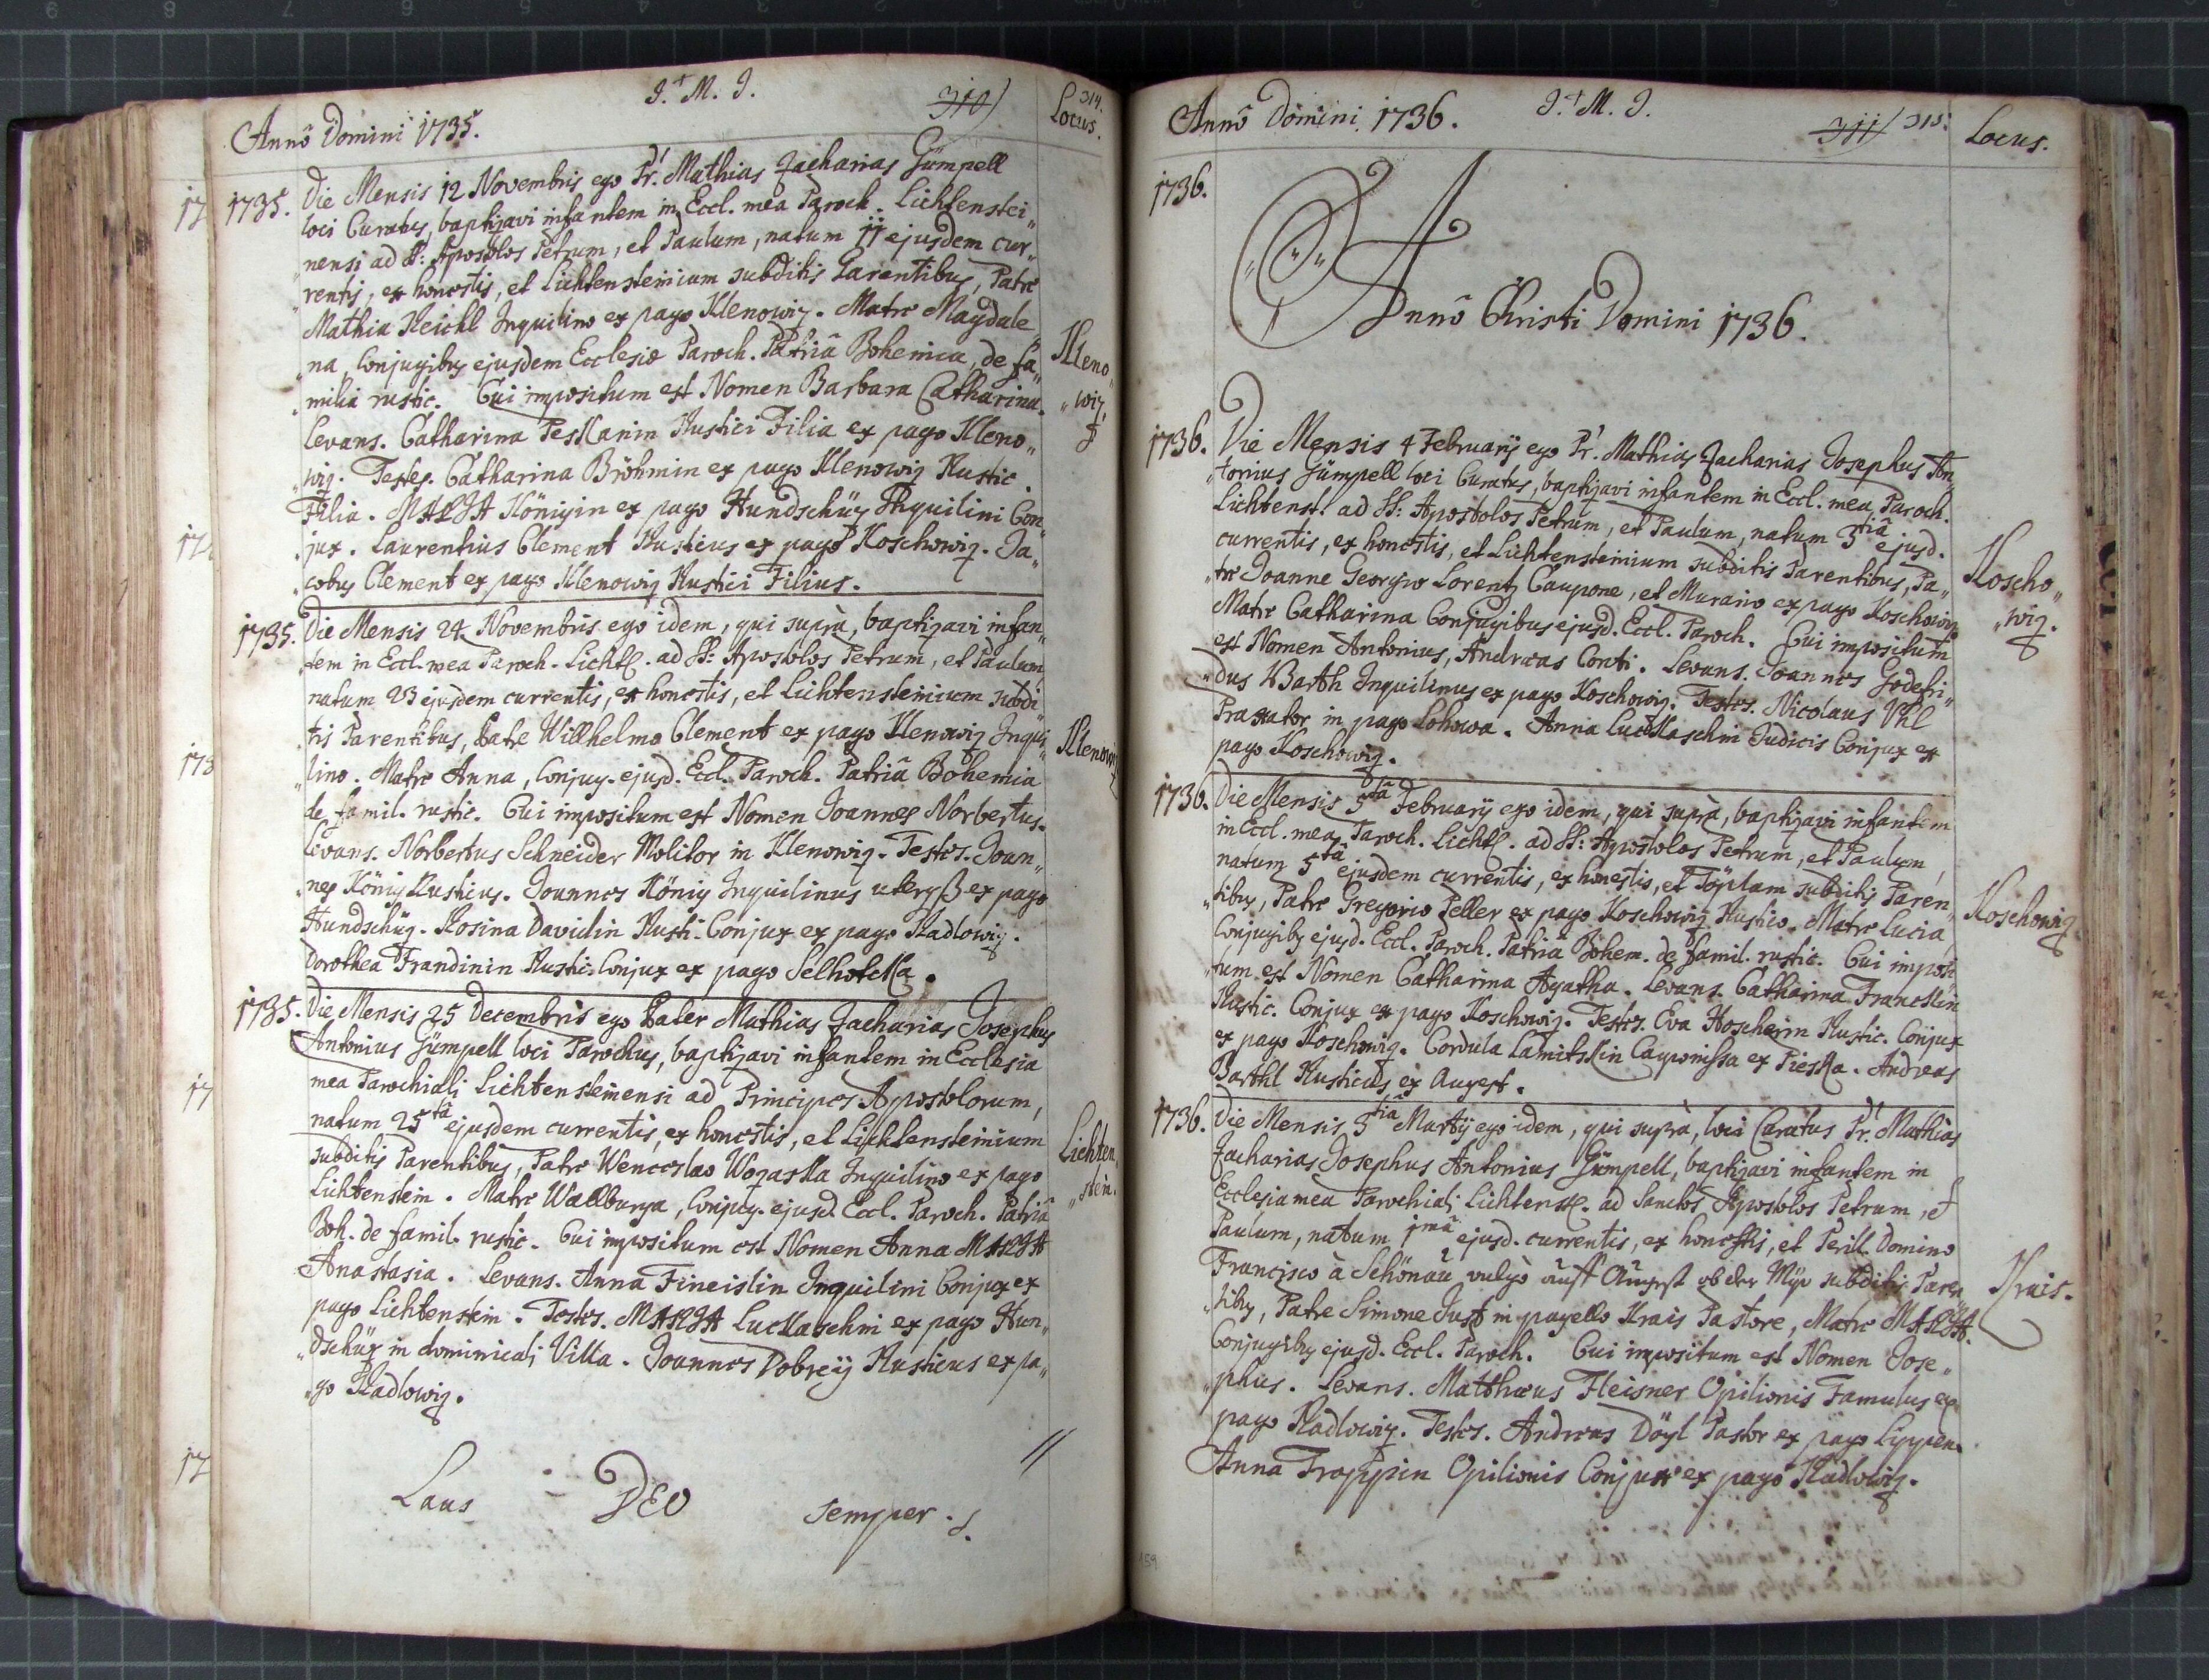 J. M. J.
310) 314.
Locus.
Anno Domini 1735.
1735. Die Mensis 12 Novembris ego Pr. Mathias Zacharias Gümpell
loci Curatus, baptizavi infantem in Eccl. mea Paroch. Lichtenstei„
nensi ad SS: Apostolos Petrum, et Paulum, natum 11 ejusdem cur„
rentis, ex honestis, et Lichtensteinium subditis Parentibus, Patre
Mathia Reichl Inquilino ex pago Klenowiz. Matre Magdale„
„na, Conjugibus ejusdem Ecclesiæ Paroch. Patriâ Bohemica, de fa„
„milia rustic. Cui impositum est Nomen Barbara Catharina.
Levans. Catharina Peskanin Rustici Filia ex pago Kleno„
„wiz. Testes. Catharina Bröhmin ex pago Klenowiz Rustic.
Filia. MARJA Königin ex pago Hundschüz Inquilini Con„
„jux. Laurentius Clement Rusticus ex pago Koschowiz. Ja„
„cobus Clement ex pago Klenowiz Rustici Filius.
Kleno„
„wiz.
1735. Die Mensis 24 Novembris ego idem, qui suprà, baptizavi infan„
„tem in Eccl. mea Paroch. Lichtß. ad SS: Apostolos Petrum, et Paulum,
natum 23 ejusdem currentis, ex honestis, et Lichtensteinium subdi„
„tis Parentibus, Patre Willhelmo Clement ex pago Klenowiz Inqui„
„lino. Matre Anna, Conjug. ejusd. Eccl. Paroch. Patriâ Bohemia
de famil. rustic. Cui impositum est Nomen Joannes Norbertus.
Levans. Norbertus Schneider Molitor in Klenowiz. Testes. Joan„
„nes König Rusticus. Joannes König Inquilinus uterqß ex pago
Hundschüz. Rosina Davidin Rusti. Conjux ex pago Radlowiz.
Dorothea Frandinin Rustic. Conjux ex pago Selhotcka.
Klenowiz
1735. Die Mensis 25 Decembris ego Pater Mathias Zacharias Josephus
Antonius Gümpell loci Parochus, baptizavi infantem in Ecclesia
mea Parochiali Lichtensteinensi ad Principes Apostolorum,
natum 25tâ ejusdem currentis, ex honestis, et Lichtensteinium
subditis Parentibus, Patre Wenceslao Wozaska Inquilino ex pago
Lichtenstein. Matre Wallburga, Conjug. ejusd. Eccl. Paroch. Patriâ
Boh. de famil. rustic. Cui impositum est Nomen Anna MARJA
Anastasia. Levans. Anna Fineislin Inquilini Conjux ex
pago Lichtenstein. Testes. MARJA Luckaschin ex pago Hun„
„dschüz in dominicali Villa. Joannes Dobreÿ Rusticus ex pa„
„go Radlowiz.
Lichten„
„stein.
Laus DEO semper.
Anno Domini 1736. J. M. J.
311) 315.
Locus.
1736.
Anno Christi Domini 1736.
1736. Die Mensis 4 Februarij ego Pr. Mathias Zacharias Josephus An„
„tonius Gümpell loci Curatus, baptizavi infantem in Eccl. mea Paroch.
Lichtenst. ad SS: Apostolos Petrum, et Paulum, natum 3tiâ ejusd.
currentis, ex honestis, et Lichtensteinium subditis Parentibus, Pa„
„tre Joanne Georgio Lorentz Caupone, et Murario ex pago Koschowiz
Matre Catharina Conjugibus ejusd. Eccl. Paroch. Cui impositum
est Nomen Antonius, Andreas Conti. Levans. Joannes Godefri„
„dus Barth Inquilinus ex pago Koschowiz. Testes. Nicolaus Vhl
Praxator in pago Lohowa. Anna Luckaschin Judicis Conjux ex
pago Koschowiz.
Koscho„
„wiz.
1736. Die Mensis 5tâ Februarij ego idem, qui suprà, baptizavi infantem
in Eccl. mea Paroch. Lichtß. ad SS: Apostolos Petrum, et Paulum,
natum 5tâ ejusdem currentis, ex honestis, et Töplam subditis Paren„
„tibus, Patre Gregorio Peller ex pago Koschowiz Rustico. Matre Lucia
Conjugibus ejusd. Eccl. Paroch. Patriâ Bohem. de famil. rustic. Cui imposi„
„tum est Nomen Catharina Agatha. Levans. Catharina Francklin
Rustic. Conjux ex pago Koschowiz. Testes. Eva Hoscherin Rustic. Conjux
ex pago Koschowiz. Cordula Lamitskin Cauponissa ex Pieska. Andreas
Barthl Rusticus ex Augest.
Koschowiz.
1736. Die Mensis 5tiâ Martij ego idem, qui suprà, loci Curatus Pr. Mathias
Zacharias Josephus Antonius Gümpell, baptizavi infantem in
Ecclesia mea Parochiali Lichtenst. ad Sanctos Apostolos Petrum, et
Paulum, natum 1mâ ejusd. currentis, ex honestis, et Perill. Domino
Francisco à Schönau vulgò auff Augest ob der Myß subditis Paren„
„tibus, Patre Simone Just in pagello Krais Pastore, Matre MARJA.
Conjugibus ejusd. Eccl. Paroch. Cui impositum est Nomen Jose„
„phus. Levans. Matthæus Fleisner Opilionis Famulus ex
pago Radlowiz. Testes. Andreas Döyl Pastor ex pago Lippen.
Anna Frappin Opilionis Conjux ex pago Radlowiz.
Krais.
159